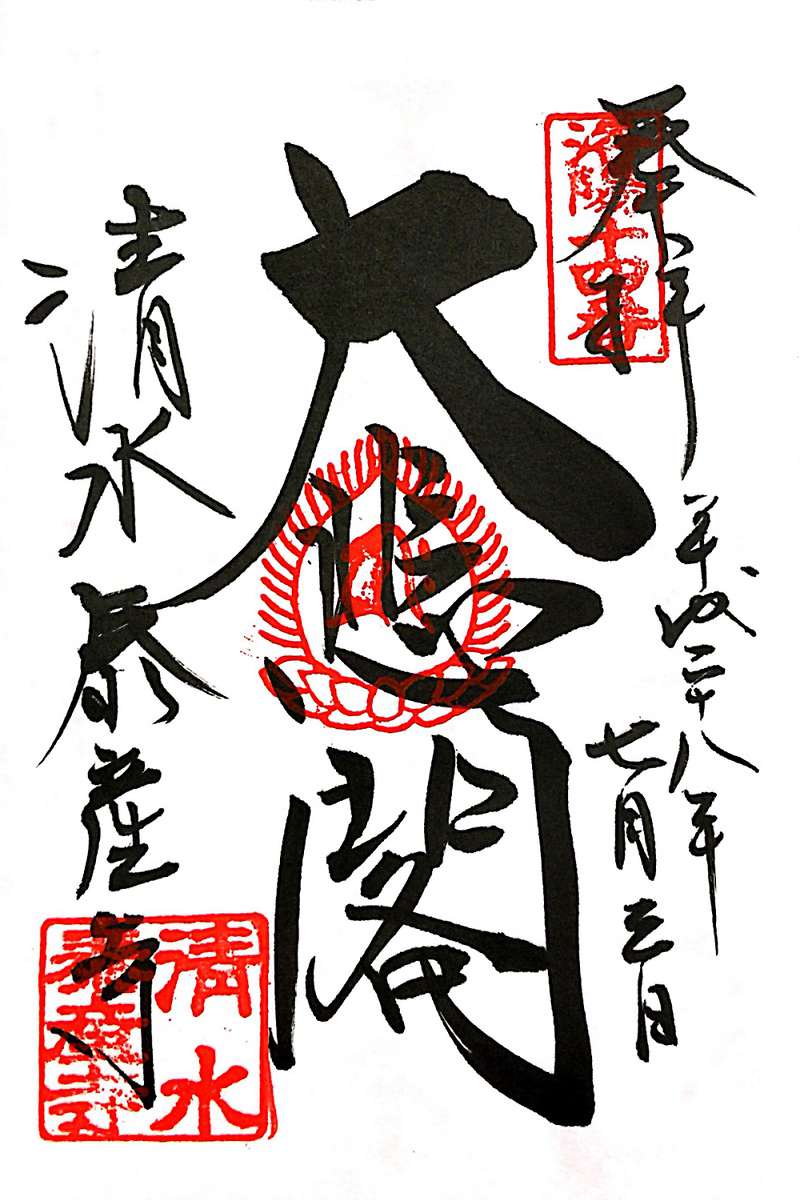 奉拝
洛陽十四番
平成二十八年
七月三日
大悲閣
清水泰産寺
清水
泰産寺